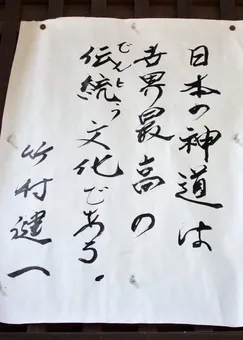 日本の神道は
世界最高の
でんとう
伝統文化である.
竹村健一